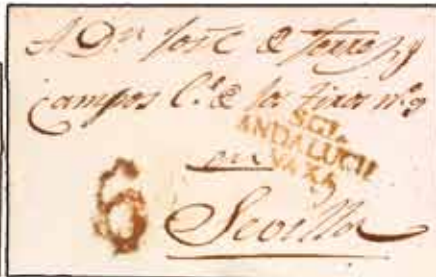 A Dn. José de Torres y
Campos C.e de la Tiros nº 9
SGL.
ANDALUCIA
VAXA
en
6
Sevilla